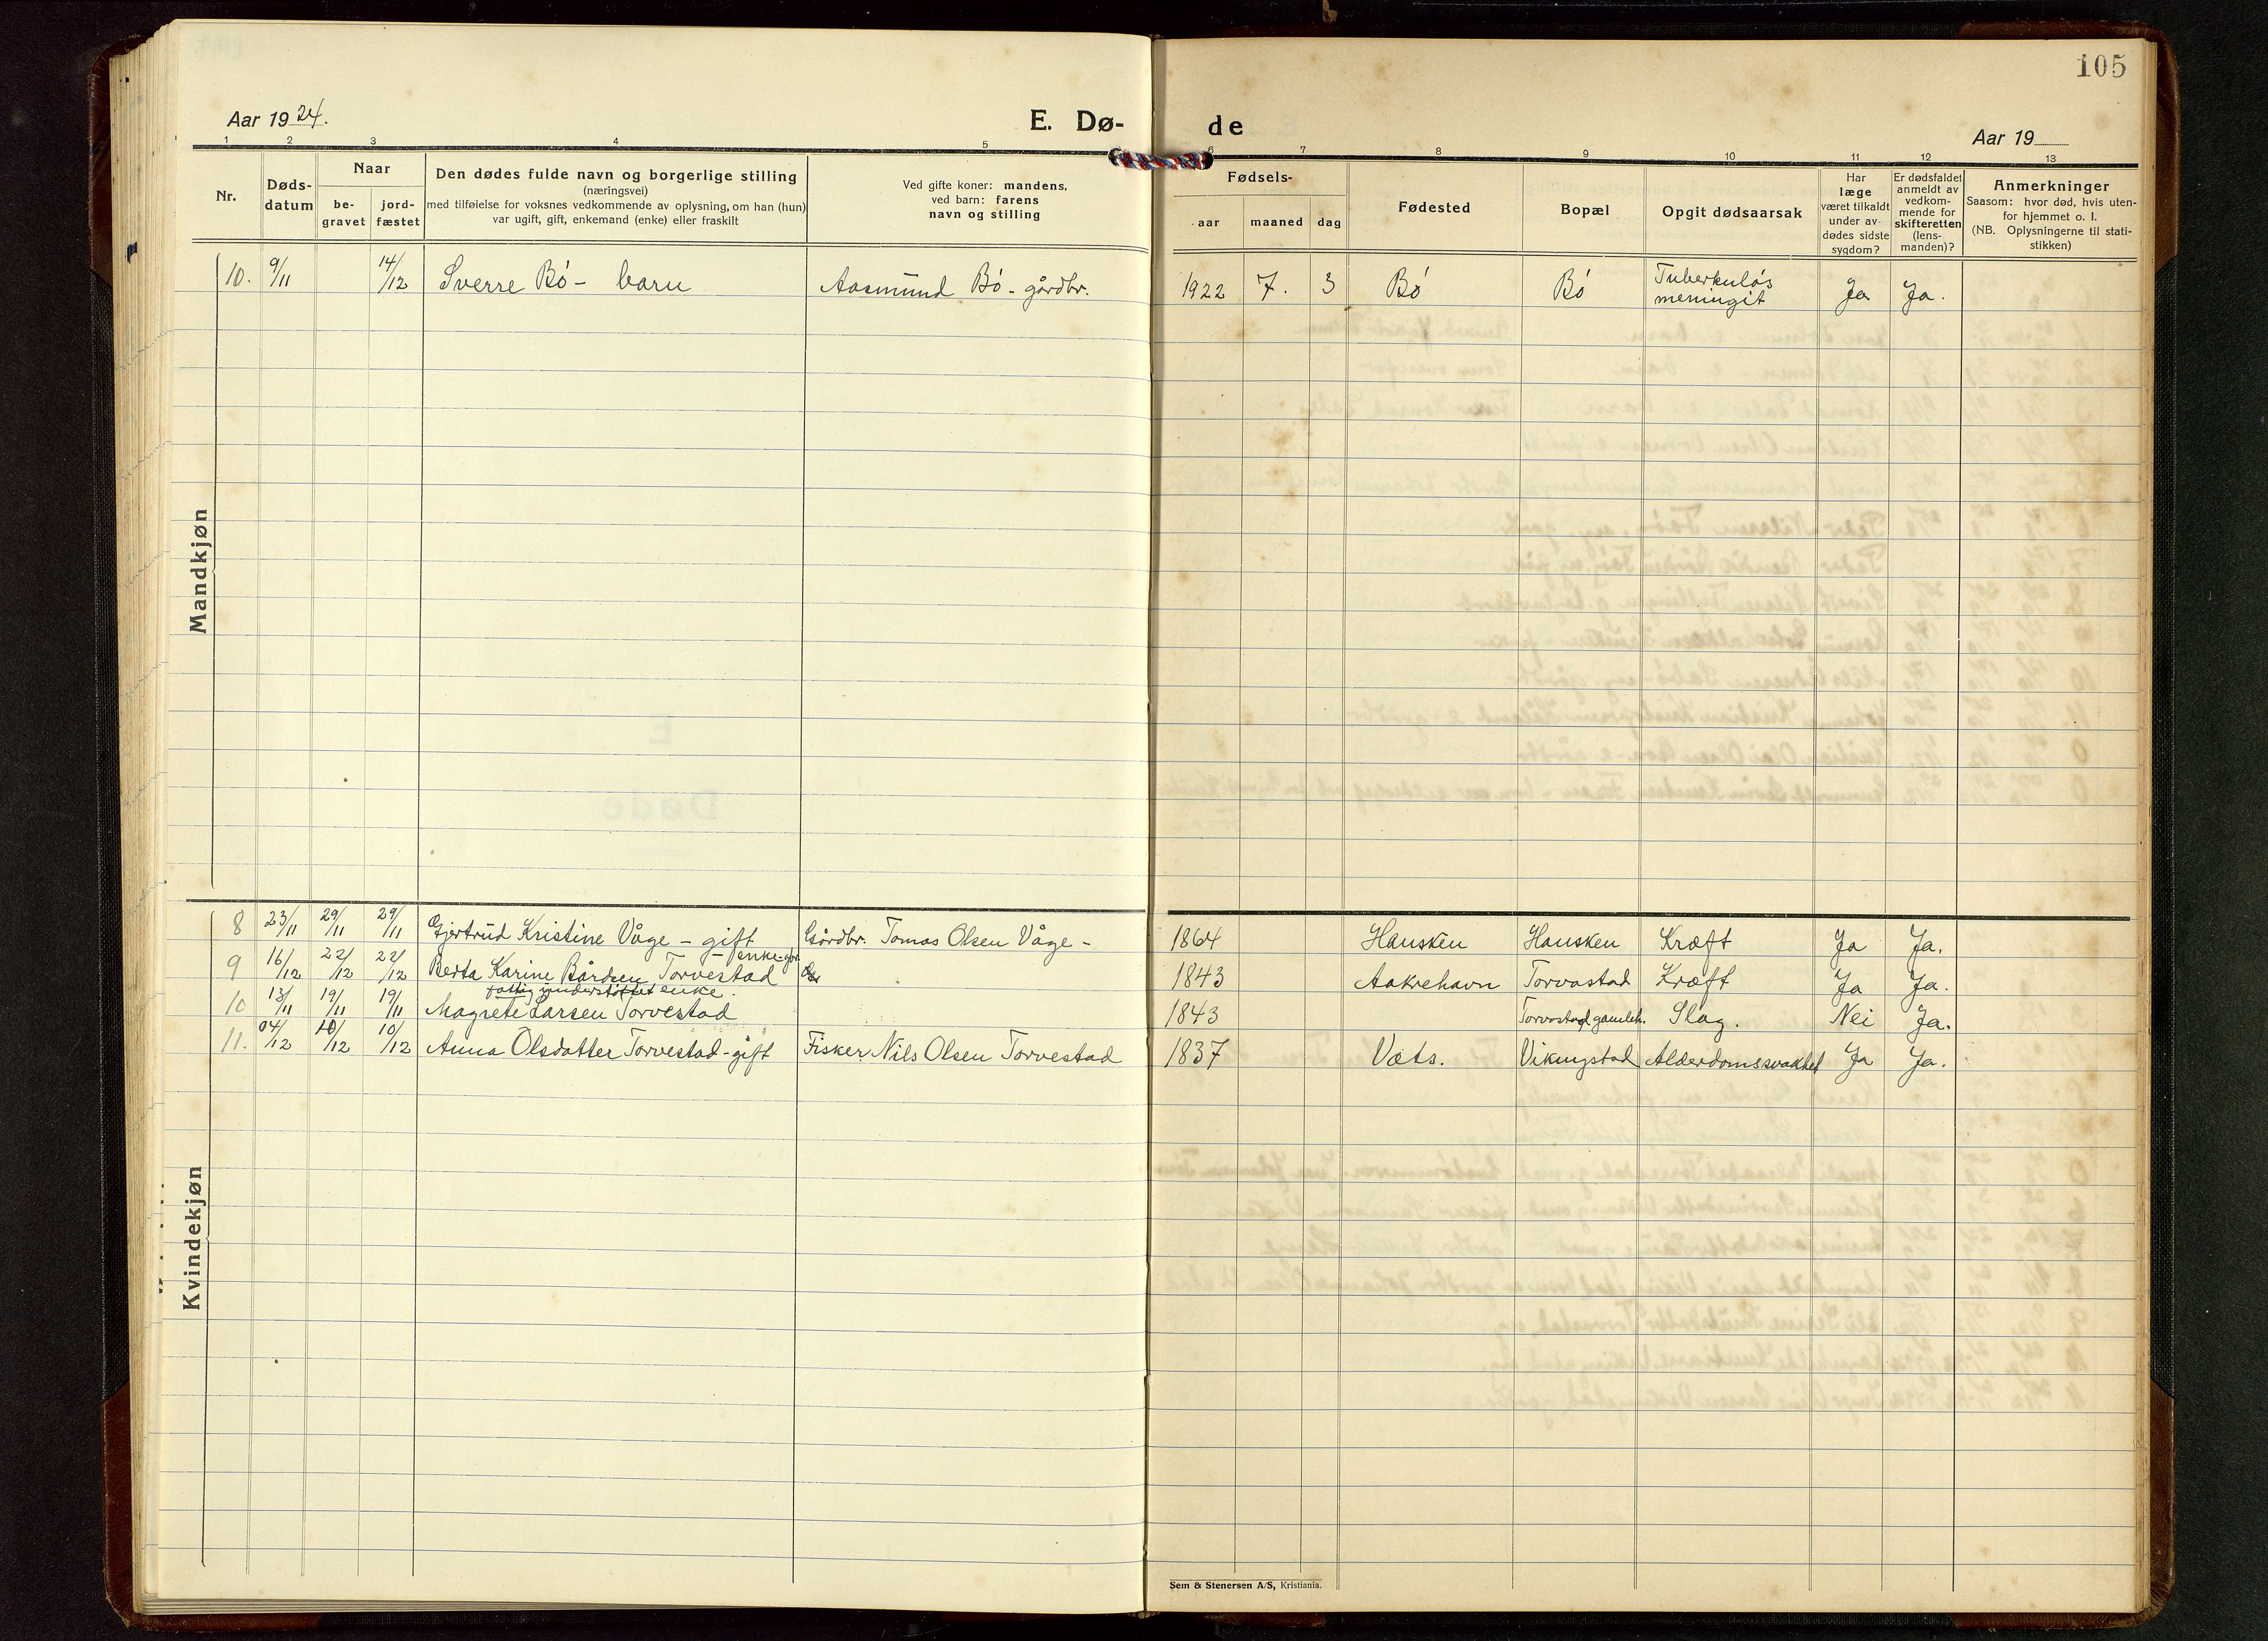 105
Aar 1924.
E. Dø-
de
Aar 19
1 2 3 4 5 6 7 8 9 10 11 12 13
Nr.
Døds-
datum
Naar
be-
gravet
jord-
fæstet
Den dødes fulde navn og borgerlige stilling
(næringsvei)
med tilføielse for voksnes vedkommende av oplysning, om han (hun)
var ugift, gift, enkemand (enke) eller fraskilt
Ved gifte koner: mandens,
ved barn: farens
navn og stilling
Fødsels-
aar maaned dag
Fødested
Bopæl
Opgit dødsaarsak
Har
læge
været tilkaldt
under av-
dødes sidste
sygdom?
Er dødsfaldet
anmeldt av
vedkom-
mende for
skifteretten
(lens-
manden)?
Anmerkninger
Saasom: hvor død, hvis uten-
for hjemmet o. l.
(NB. Oplysningerne til stati-
stikken)
Mandkjøn
10. 9/11 14/12 Sverre Bö - barn Aasmund Bö - gårdbr. 1922 7. 3 Bö Bö Tuberkuløs
meningit Ja Ja.
Kvindekjøn
8 23/11 29/11 29/11 Gjertrud Kristine Våge - gift Gårdbr. Tomas Olsen Våge - 1864 Hausken Hausken Kræft Ja Ja.
- enke
9 16/12 22/12 22/12 Berta Karine Bårdsen Torvestad 1843 Aakrehavn Torvastad Kræft Ja Ja.
fattig understöttet enke.
10 13/11 19/11 19/11 Magrete Larsen Torvestad 1843 Torvastad gamleh. Slag. Nei Ja.
11. 04/12 10/12 10/12 Anna Olsdatter Torvestad - gift Fisker Nils Olsen Torvestad 1837 Vats. Vikingstad Alderdomssvakhet Ja Ja.
Sem & Stenersen A/S, Kristiania.